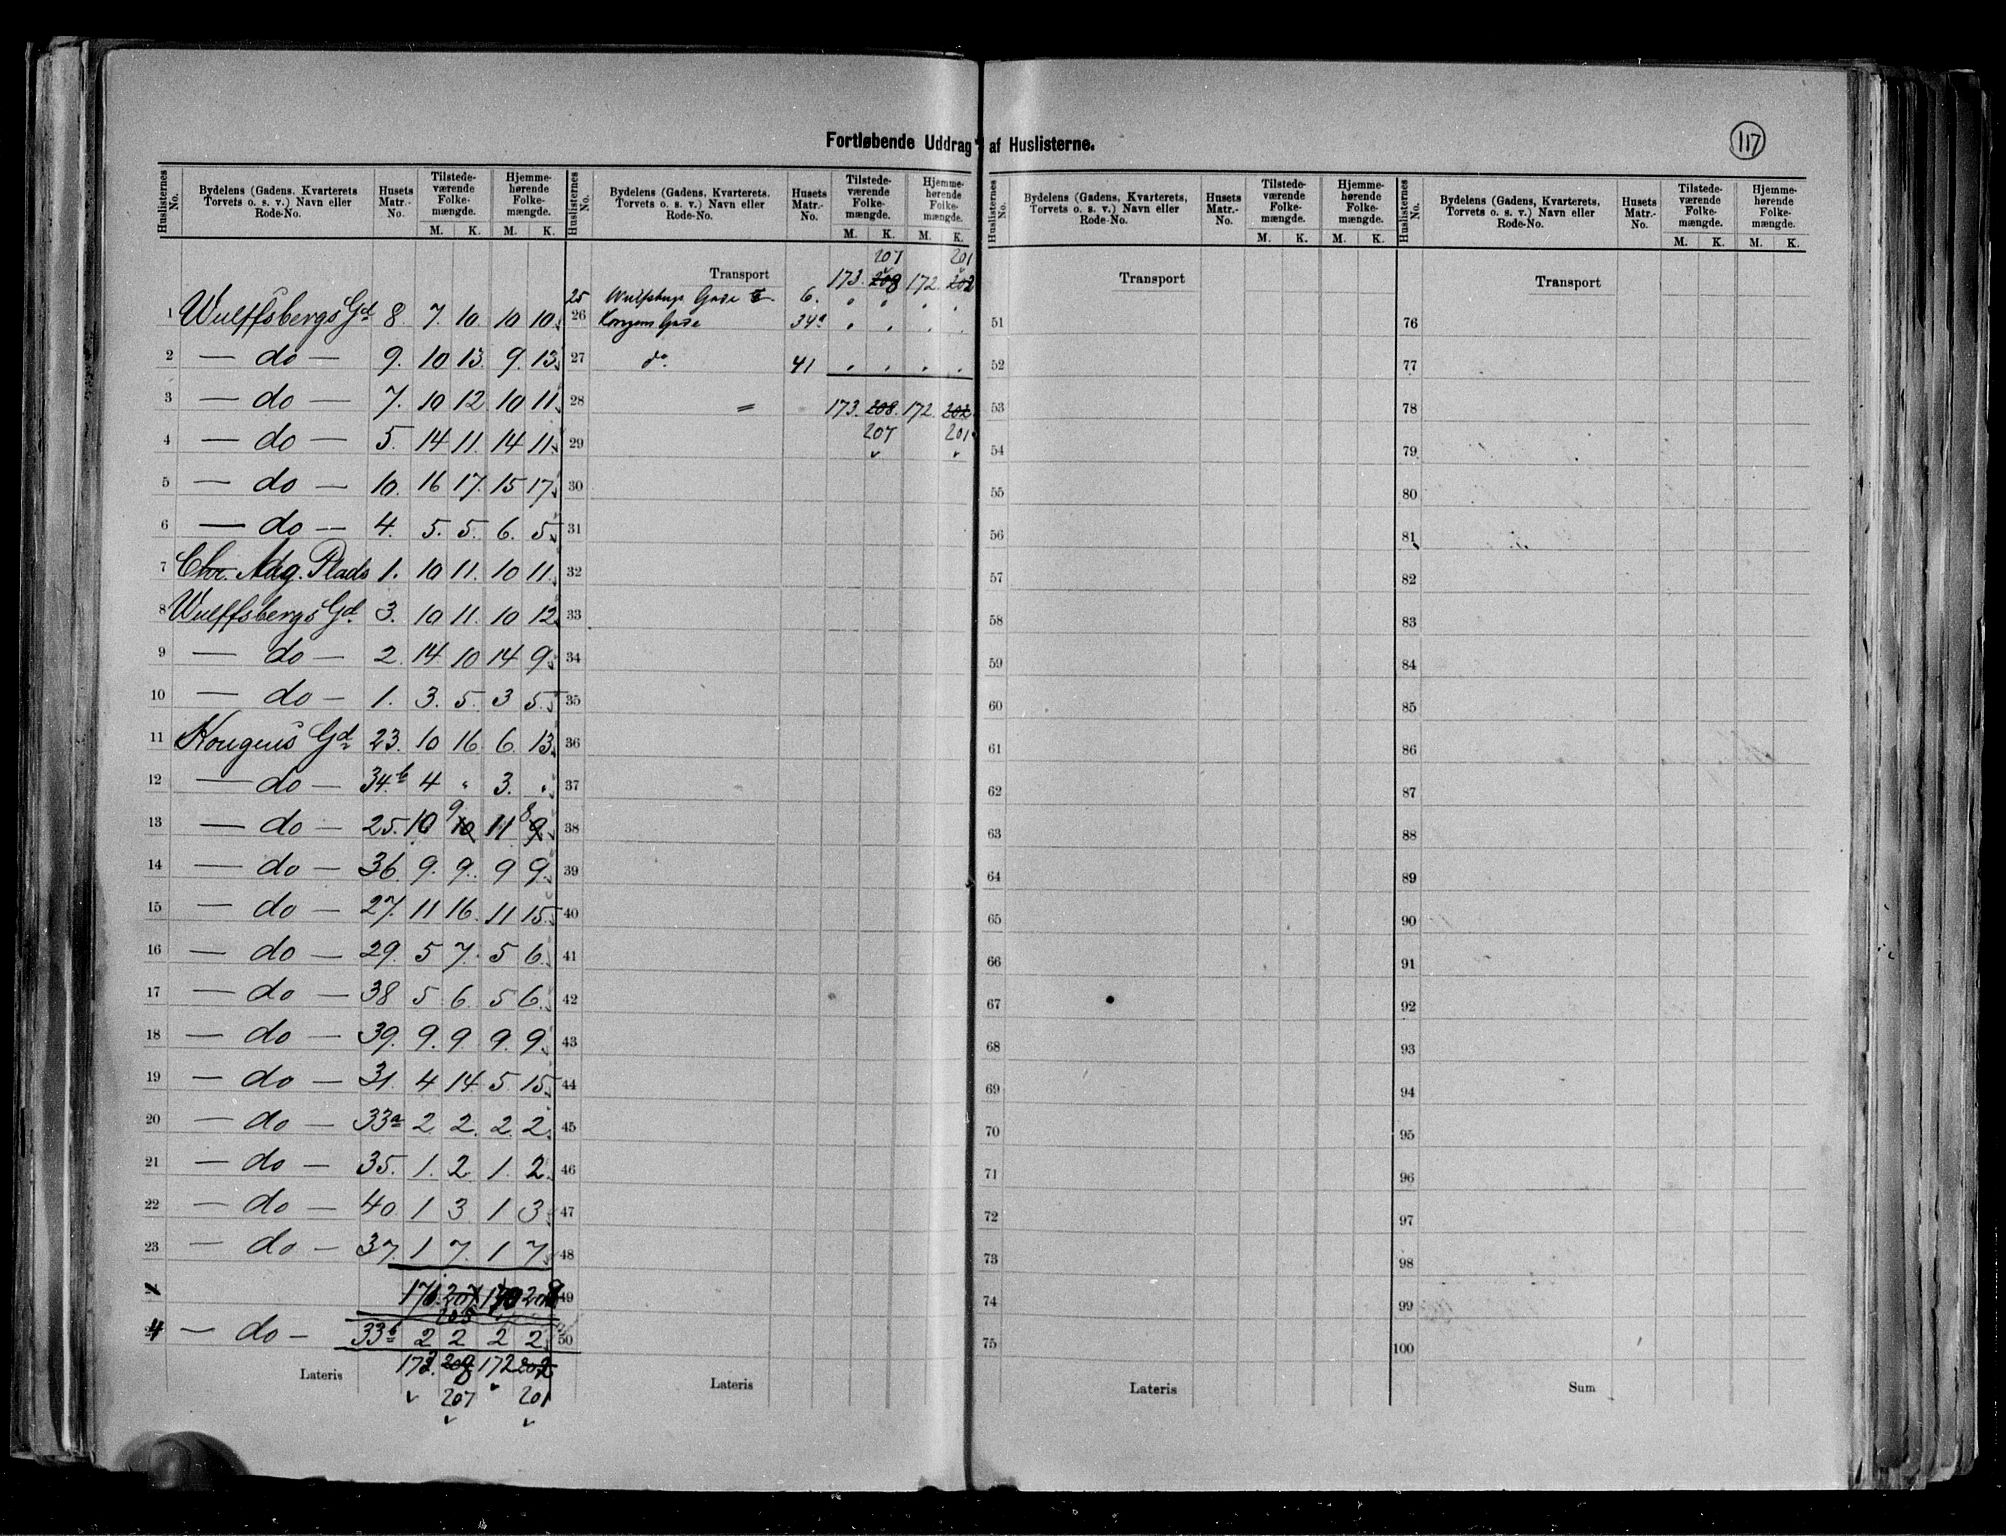 Fortløbende Uddrag af Huslisterne.
117
Huslisternes No. Bydelens (Gadens, Kvarterets Torvets o. s. v.) Navn eller Rode-No. Husets Matr.-No. Tilstedeværende Folkemængde. M. K. Hjemmehørende Folkemængde. M. K.
1 Wulffsbergs Gd 8 7. 10. 10 10.
2 — do — 9. 10 13. 9. 13.
3 — do — 7. 10 12 10 11.
4 — do — 5. 14 11. 14 11.
5 — do — 10. 16 17. 15 17.
6 — do — 4. 5. 5. 6. 5.
7 Chr. Aug. Plads 1. 10 11. 10 11.
8 Wulffsbergs Gd. 3. 10 11. 10 12.
9 — do — 2. 14. 10 14 9.
10 — do — 1. 3. 5. 3 5.
11 Kongens Gd. 23. 10 16 6. 13.
12 — do — 34.b 4 " 3. "
13 — do — 25. 10 10 9 11 9 8
14 — do — 36. 9. 9. 9 9.
15 — do — 27. 11 16. 11 15.
16 — do — 29. 5 7. 5 6.
17 — do — 38 5 6. 5 6.
18 — do — 39. 9. 9 9. 9.
19 — do — 31. 4 14. 5. 15.
20 — do — 33a 2 2. 2. 2.
21 — do — 35. 1. 2 1. 2.
22 — do — 40. 1 3. 1 3.
23 — do — 37. 1 7. 1 7.
4 — do — 33b 2 2 2 2
Lateris 172
207 201
Huslisternes No. Bydelens (Gadens, Kvarterets, Torvets o. s. v.) Navn eller Rode-No. Husets Matr.-No. Tilstedeværende Folkemængde. M. K. Hjemmehørende Folkemængde. M. K.
207 201
Transport 173. 208 172. 202
25 Gade 6. " " " "
26 Kongens Gade 34a " " " "
27 do. 41 " " " "
28 = 173. 208. 172. 202.
29 207 201.
30
31
32
33
34
35
36
37
38
39
40
41
42
43
44
45
46
47
48
49
50
Lateris
Huslisternes No. Bydelens (Gadens, Kvarterets, Torvets o. s. v.) Navn eller Rode-No. Husets Matr.-No. Tilstedeværende Folkemængde. M. K. Hjemmehørende Folkemængde. M. K.
Transport
51
52
53
54
55
56
57
58
59
60
61
62
63
64
65
66
67
68
69
70
71
72
73
74
75
Lateris
Huslisternes No. Bydelens (Gadens, Kvarterets, Torvets o. s. v.) Navn eller Rode-No. Husets Matr.-No. Tilstedeværende Folkemængde. M. K. Hjemmehørende Folkemængde. M. K.
Transport
76
77
78
79
80
81
82
83
84
85
86
87
88
89
90
91
92
93
94
95
96
97
98
99
100
Sum